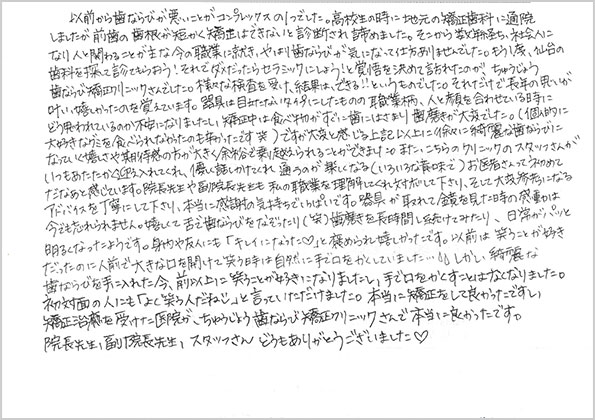 以前から歯ならびが悪いことがコンプレックスの1つでした。高校生の時に地元の矯正歯科に通院
しましたが前歯の歯根が短かく矯正はできないと診断され諦めました。そこから数年経ち、社会人に
なり人と関わることが主な今の職業に就き、やはり歯ならびが気になって仕方ありませんでした。もう1度、仙台の
歯科を探して診てもらおう!それでダメだったらセラミックにしよう!と覚悟を決めて訪れたのが、ちゅうじょう
歯ならび矯正クリニックさんでした。様々な検査を受け、結果は、できる!!というものでした。それだけで長年の思いが
叶い、嬉しかったのを覚えています。器具は目立たないタイプにしたものの職業柄、人と顔を合わせている時に
どう思われているのか不安になりましたし、矯正中は食べ物がすぐに歯にはさまり歯磨きが大変でした。(個人的に
大好きなグミを食べられなかったのも辛かったです)ですが大変と感じる上記以上に徐々に綺麗な歯ならびに
なっていく嬉しさや期待感の方が大きく余裕で乗り越えられることができました。また、こちらのクリニックのスタッフさんが
いつもあたたかく迎え入れてくれ、優しく話しかけてくれ通うのが楽しくなる(いろいろな意味で)お医者さんって初めて
だなあと感じています。院長先生や副院長先生も私の職業を理解してくれ対応して下さり、そして大変参考になる
アドバイスを丁寧にして下さり、本当に感謝の気持ちでいっぱいです。器具が取れて鏡を見た時の感動は
今でも忘れられません。嬉しくて舌で歯ならびをなぞったり(笑)歯磨きを長時間し続けてみたり、日常がパッと
明るくなったようです。身内や友人にも「キレイになった♡」と褒められ嬉しかったです。以前は笑うことが好き
だったのに人前で大きな口を開けて笑う時は自然に手で口をかくしていました…しかし綺麗な
歯ならびを手に入れた今、前以上に笑うことが好きになりましたし、手で口をかくすことはなくなりました。
初対面の人にも「よく笑うんだね」と言っていただけました。本当に矯正をして良かったですし、
矯正治療を受けた医院が、ちゅうじょう歯ならび矯正クリニックさんで本当に良かったです。
院長先生、副院長先生、スタッフさん どうもありがとうございました♡